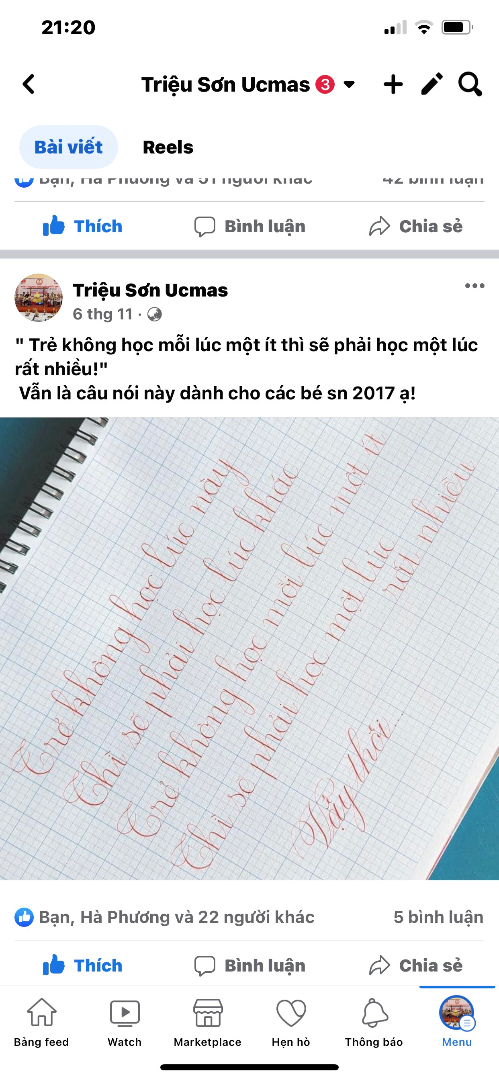 21:20
Triệu Sơn Ucmas 3
Bài viết Reels
Bạn, Hà Phương và 51 người khác 42 bình luận
Thích Bình luận Chia sẻ
Triệu Sơn Ucmas
6 thg 11
" Trẻ không học mỗi lúc một ít thì sẽ phải học một lúc
rất nhiều!"
Vẫn là câu nói này dành cho các bé sn 2017 ạ!
Trẻ không học lúc này
Thì sẽ phải học lúc khác
Trẻ không học mỗi lúc một ít
Thì sẽ phải học một lúc
rất nhiều
Vậy thôi...
Bạn, Hà Phương và 22 người khác 5 bình luận
Thích Bình luận Chia sẻ
Bảng feed Watch Marketplace Hẹn hò Thông báo Menu